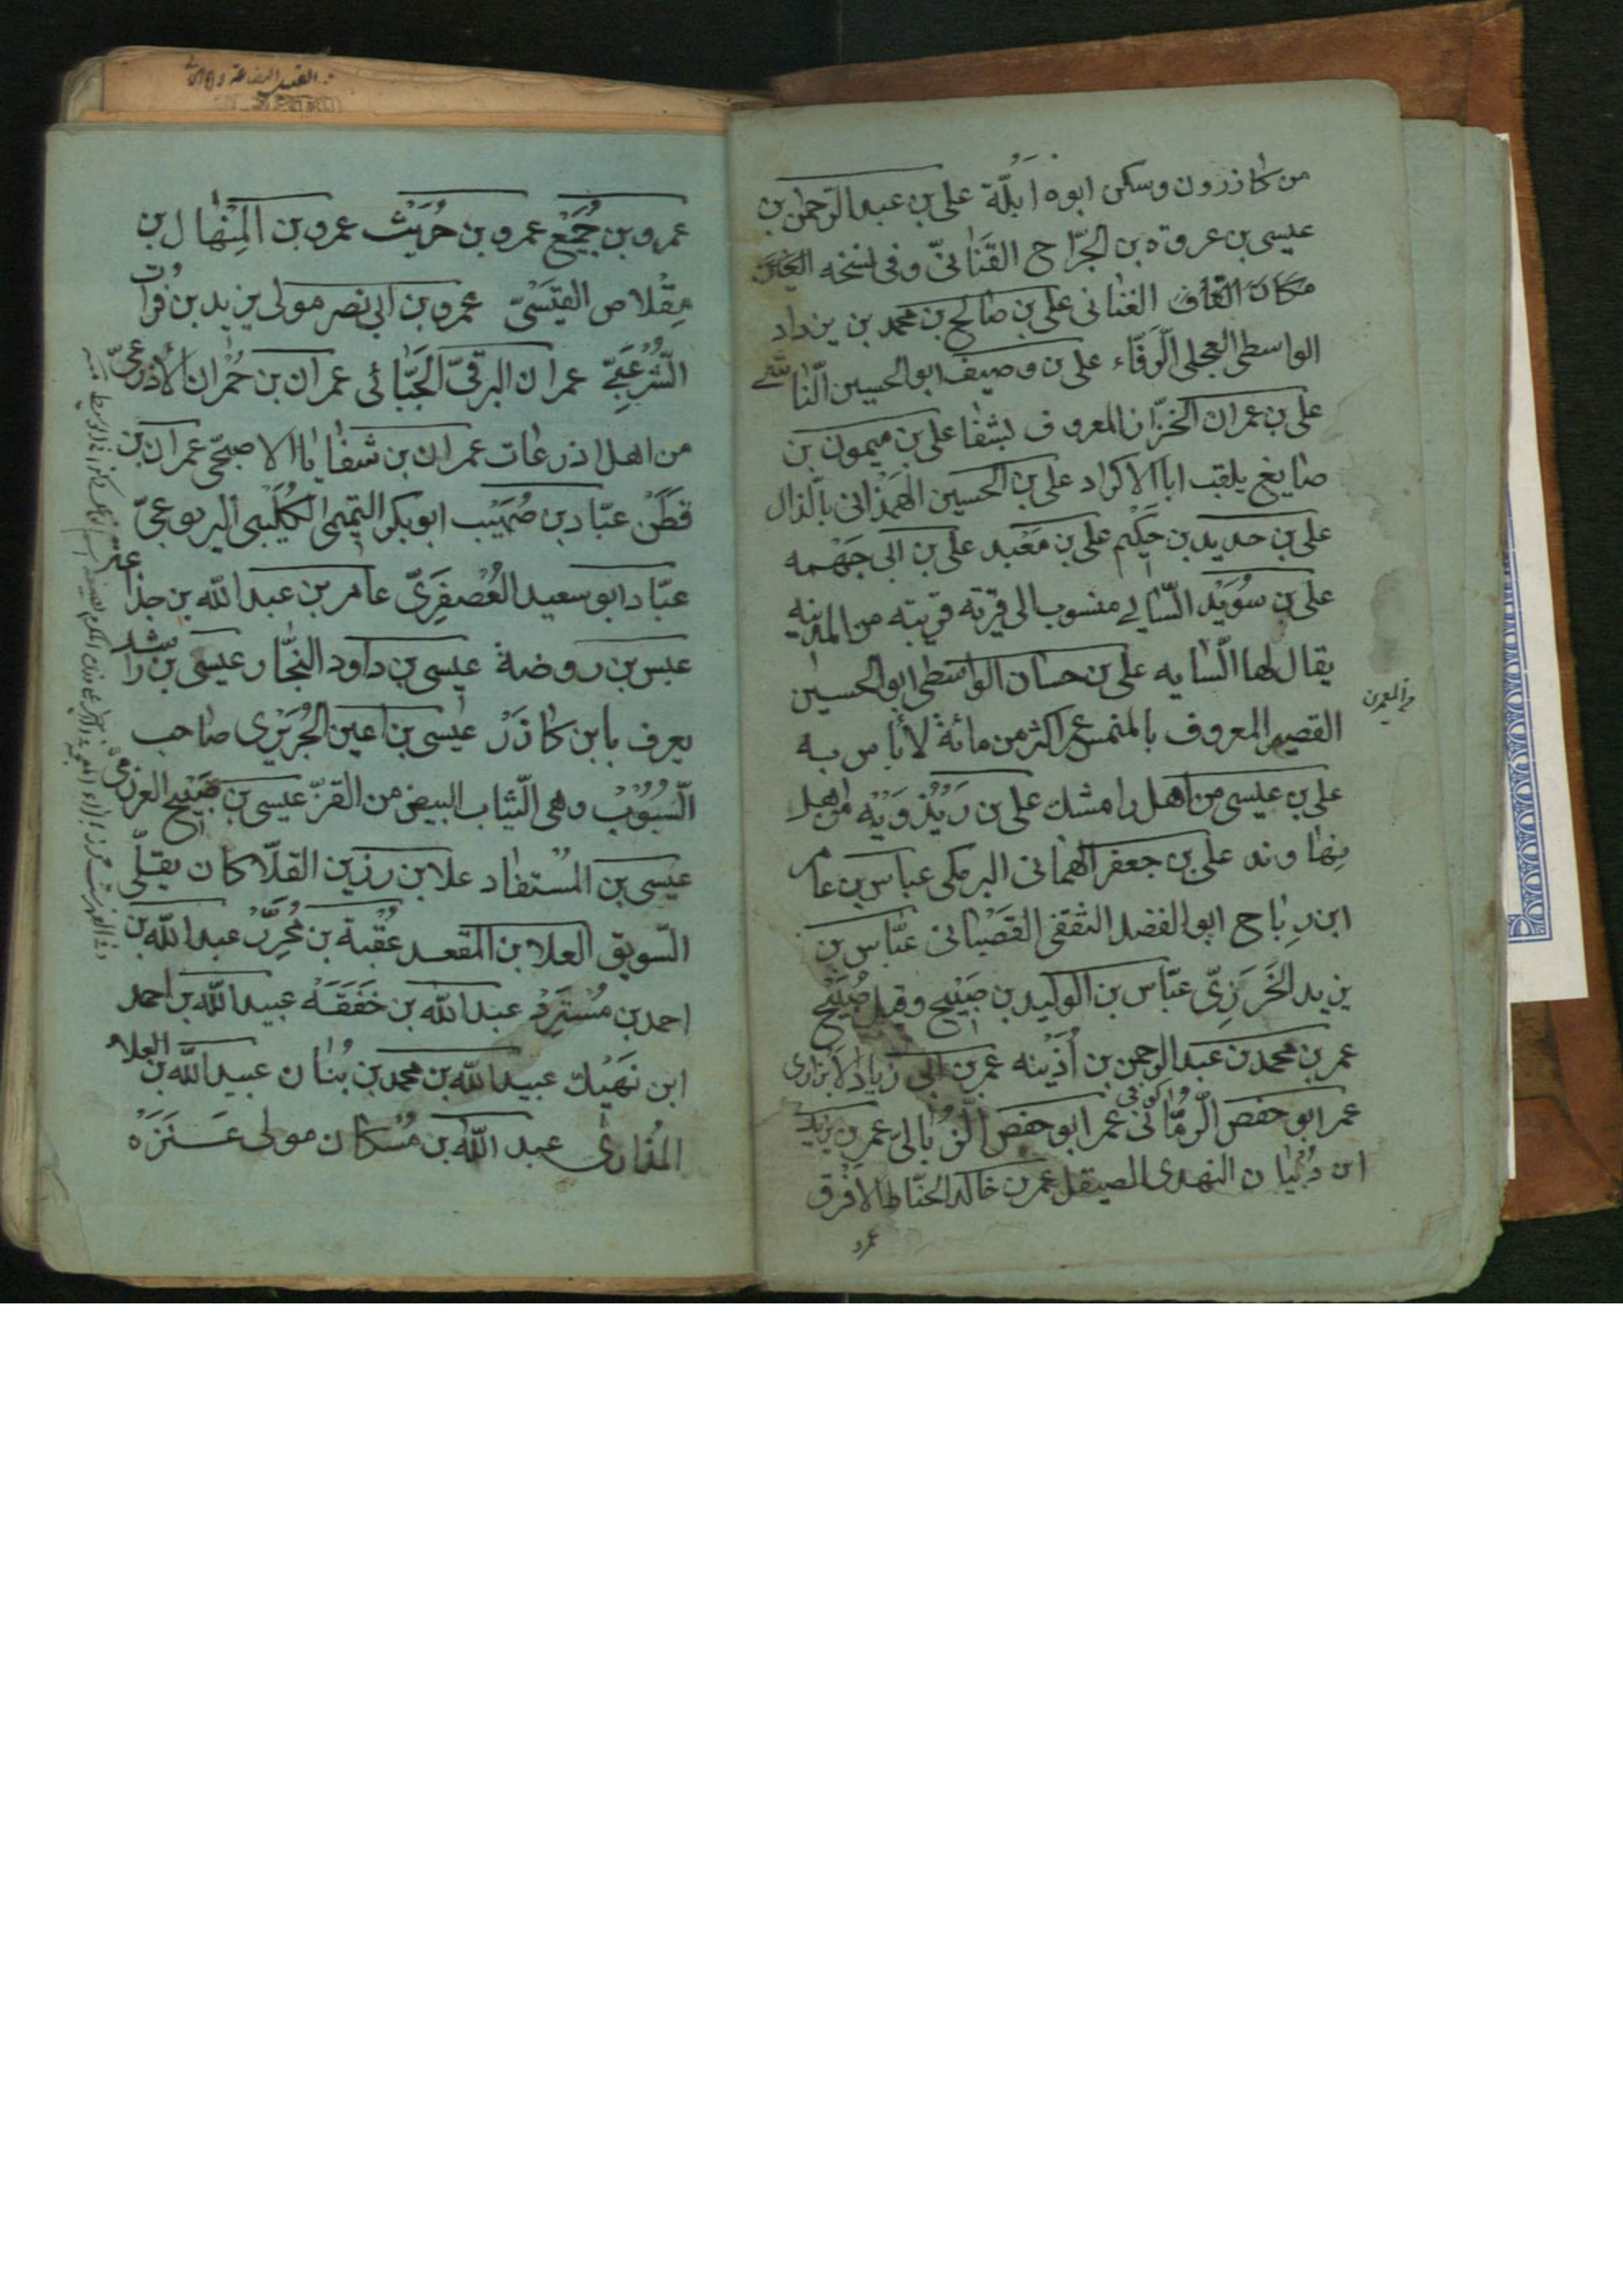 من كازرون وسكن ابوه ابلّة على بن عبد الرّحمن بن
عيسى بن عروة بن الجرّاح القَنَانىّ وفى نسخه الغين
مكان القاف الغنانى على بن صالح بن محمد بن يزداد
الواسطى العجلى الرّفّاء على بن وصيف ابو الحسين النّاشى
على بن عمران الخزّاز المعروف بشفا على بن ميمون بن
صايغ يلقب ابا الاكراد على بن الحسين الهمذانى بالّذال
على بن حديد بن حَكيم على بن مَعْبد على بن ابى جَهْمه
على بن سُوَيْد السّايى منسوب الى قرية قريبة من المدينه
يقال لها السّايه على بن حسان الواسطى ابو الحسين
القصير المعروف بالمنمس عمر اكثر من مائة لا بأس به
على بن عيسى من اهل رامشك على بن رَيْذَوَيْه من اهل
نهاوند على بن جعفر الهمانى البرمكى عباس بن عامر
ابن رِباح ابو الفضل الثقفى القَصَبانى عبّاس بن
يزيد الخَرَزِىّ عبّاس بن الوليد بن صَبيح وقيل صُبَيْح
عمر بن محمد بن عبد الرحمن بن اُذَيْنه عمر بن ابى زياد الابزارى
عمر ابو حفص الرّمّانى كوفى عمر ابو حفص الزّبالىّ عمر بن يزيد
ابن ذُبْيان النهدى الصيقل عمر بن خالد الحنّاط الافرق
عمرو
عمرو بن جُمَيْع عمرو بن حُرَيْث عمرو بن المِنْهال بن
مِقْلاص القيسَىّ عمرو بن ابى نصر مولى يزيد بن فرات
الشّرْعَبىّ عمران البرقىّ الجَبّائى عمران بن حُمْران الأذرعىّ
من اهل اذرعات عمران بن شفا يا الاصبحى عمران بن
قَطَن عبّاد بن صُهَيْب ابو بكر التميمى الكُلَيْبى اليربوعىّ
عبّاد ابو سعيد العُصْفِرَىّ عامر بن عبد الله بن جذاعة
عبس بن روضة عيسى بن داود النجّار عيسى بن راشد
يعرف بابن كازَرْ عيسى بن اعين الجُرَيْرى صاحب
السُّبُوُب وهى الثّياب البيض من القزّ عيسى بن صَبيح العرزمى
عيسى بن المُسْتفاد علا بن رزين القلّا كان يقلى
السّويق العلا بن المقعد عُقْبة بن مُحَرَّزْ عبد الله بن
احمد بن مُسْتَرَدْ عبد الله بن خَفَقَهْ عبيد الله بن احمد
ابن نَهِيْك عبيد الله بن محمد بن بُنان عبيد الله بن العلاء
المُذارى عبد الله بن مُسْكان مولى عَنَزَه